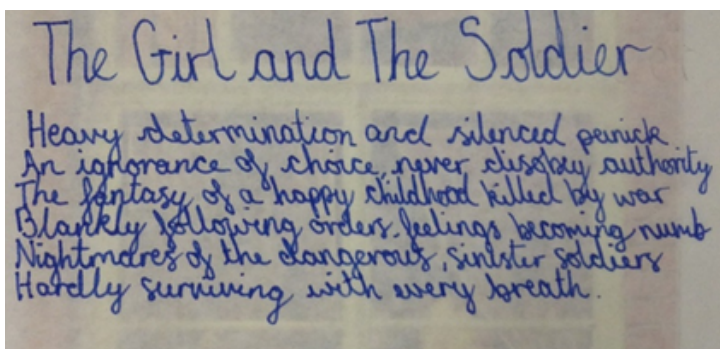 The Girl and The Soldier
Heavy determination and silenced panick
An ignorance of choice, never disobey authority
The fantasy of a happy childhood killed by war
Blankly following orders, feelings becoming numb
Nightmares of the dangerous, sinister soldiers
Hardly surviving with every breath.